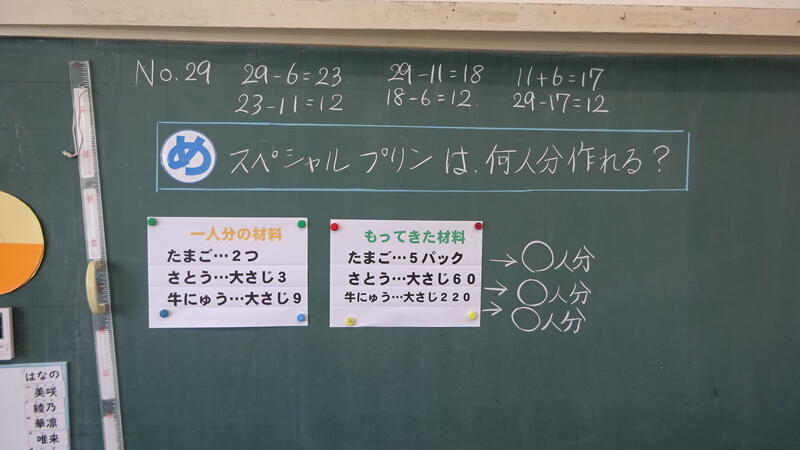 No.29
29-6=23
23-11=12
29-11=18
18-6=12.
11+6=17
29-17=12
め スペシャルプリンは、何人分作れる？
一人分の材料
たまご…２つ
さとう…大さじ３
牛にゅう…大さじ９
もってきた材料
たまご…５パック
さとう…大さじ６０
牛にゅう…大さじ２２０
→○人分
→○人分
→○人分
はなの
美咲
綾乃
華凛
唯来